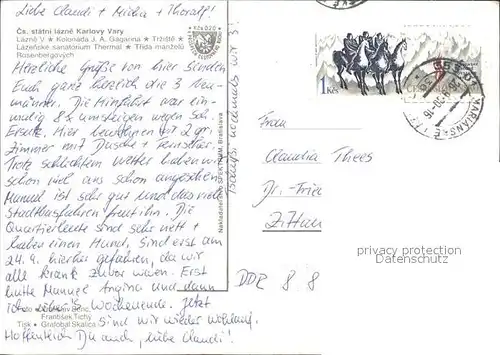 Liebe Claudi + Micha + Thoralf!
Čs. státní lázně Karlovy Vary
Lázně V • Kolonáda J. A. Gagarina • Tržiště •
Lázeňské sanatorium Thermal • Třída manželů
Rosenbergových
Herzliche Grüße von hier senden
Euch ganz herzlich die 3
männer. Die Hinfahrt war ein-
malig 8x umsteigen wegen Sch.
Ersatz. Hier bewohnen wir 2 gr.
Zimmer mit Dusche + Fernseher.
Trotz schlechtem Wetter haben wir
schon viel aus schon angesehen.
Manuel ist sehr gut und das viele
Stadtbusfahren freut ihn. Die
Quartierleute sind sehr nett +
haben einen Hund, sind erst am
24.9. hierher gefahren, da wir
alle krank zuvor waren. Erst
hatte Manuel Angina und dann
ich übers Wochenende. Jetzt
sind wir wieder wohlauf.
Hoffentlich Du auch, liebe Claudi!
Tschüßi nochmals wir 3
Nakladatelství SPEKTRUM, Bratislava
František Tichý
Tisk • Grafobal Skalica
1 Kčs
Frau
Claudia Thees
Dr.-Frie
Zittau
DDR 8 8
privacy protection
Datenschutz